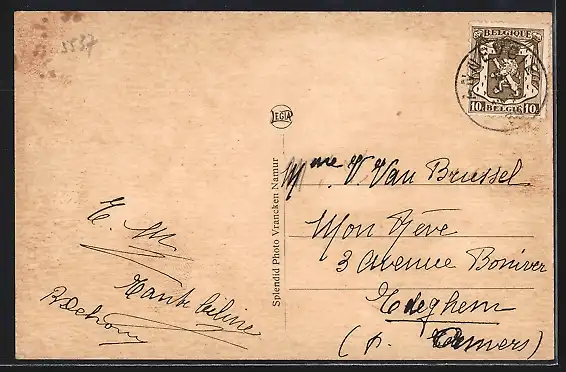 3537
BELGIQUE
10 BELGIE 10
LEGIA
Splendid Photo Vrancken Namur
Mme V. Van Brussel
Mon Rêve
3 Avenue Boniver
Edeghem
(p. Anvers)
Tante Céline